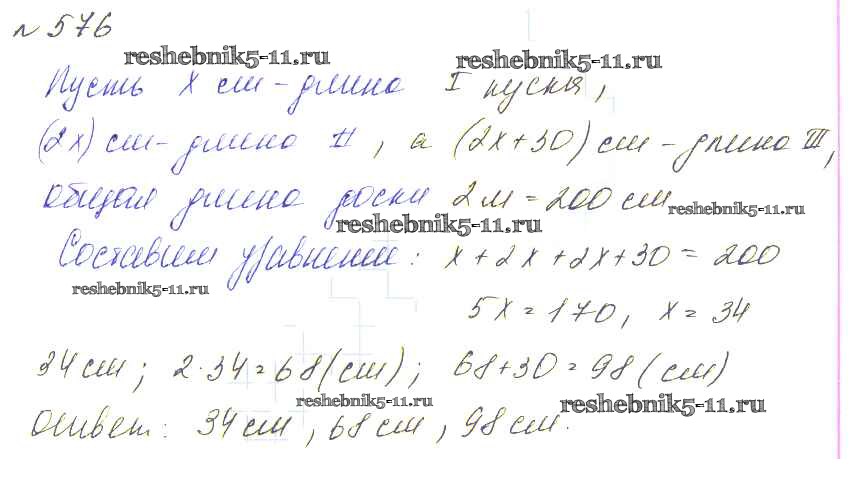 № 576
reshebnik5-11.ru reshebnik5-11.ru
Пусть x см - длина I куска,
(2x) см - длина II, а (2x+30) см - длина III,
общая длина доски 2 м = 200 см
reshebnik5-11.ru reshebnik5-11.ru
Составим уравнение: x + 2x + 2x + 30 = 200
reshebnik5-11.ru
5x = 170, x = 34
34 см; 2·34 = 68 (см); 68 + 30 = 98 (см)
reshebnik5-11.ru reshebnik5-11.ru
Ответ: 34 см, 68 см, 98 см.